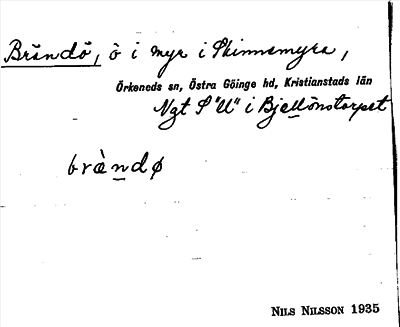 Brändö, ö i myr i Skinnsmyra,
Örkeneds sn, Östra Göinge hd, Kristianstads län
Ngt S "U" i Bjellönstorpet
bràndø
NILS NILSSON 1935